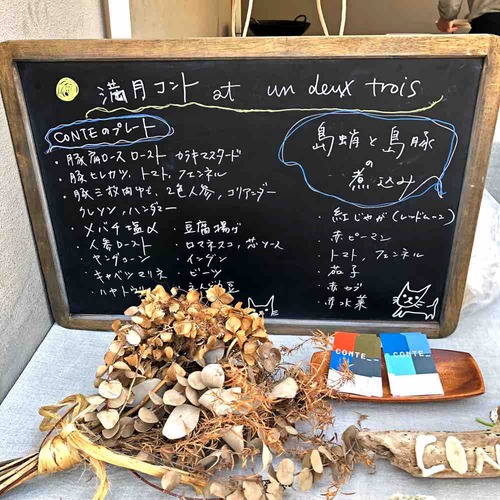 満月コント at un deux trois
CONTEのプレート
・豚肩ロースロースト カラキマスタード
・豚ヒレカツ、トマト、フェンネル
・豚三枚肉 2色人参、コリアンダー
クレソン、ハンダマー
・メバチ塩〆
・人参ロースト
・ヤングコーン
・キャベツマリネ
・ハヤトウリ
・豆腐揚げ
・ロマネスコ、
・インゲン
・ビーツ
島蛸と島豚
の
煮込み
・紅じゃが(レッドムーン)
・赤ピーマン
・トマト、フェンネル
・茄子
・赤カブ
・赤水菜
CONTE_
CONTE_
CON